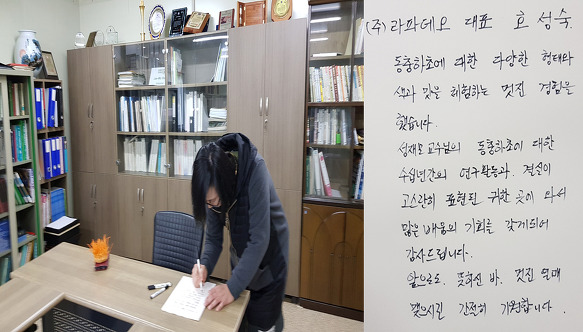 (주) 라파데오 대표 호성숙.
동충하초에 대한 다양한 형태와
색과 맛을 체험하는 멋진 경험을
했습니다.
성재모 교수님의 동충하초에 대한
수십년간의 연구활동과. 결실이
고스란히 표현된 귀한 곳에 와서
많은 배움의 기회를 갖게되어
감사드립니다.
앞으로도. 뜻하신 바. 멋진 열매
맺으시길 간절히 기원합니다.